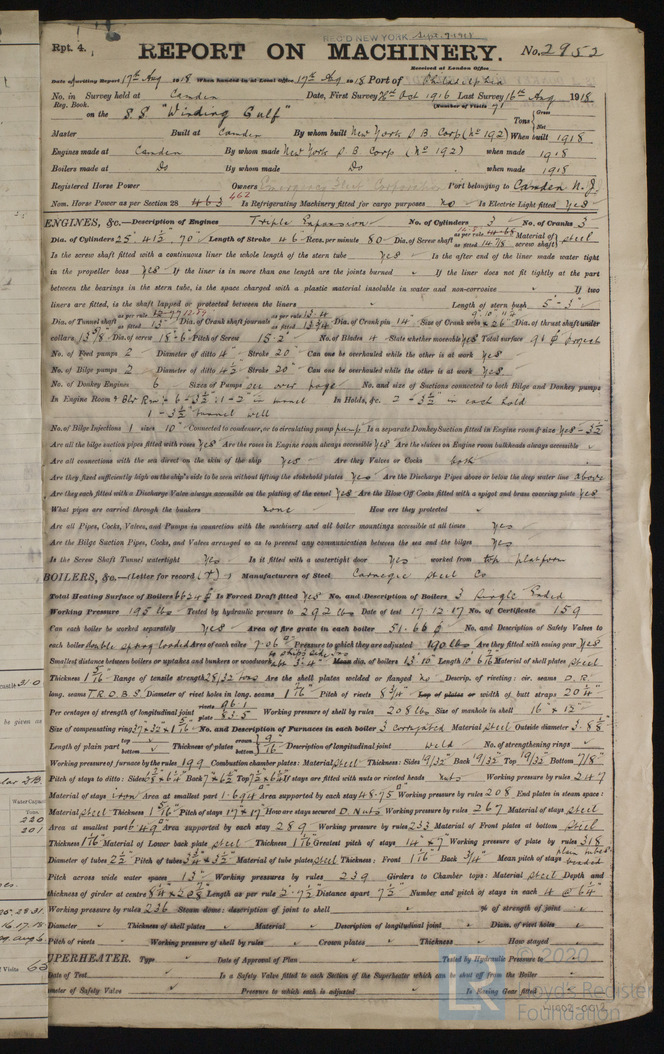 REC'D NEW YORK Sept. 7-1918
Rpt. 4. REPORT ON MACHINERY. No. 2952
Received at London Office
Date of writing Report 17th Aug 1918 When handed in at Local Office 17th Aug 1918 Port of Philadelphia
No. in Survey held at Camden Date, First Survey Oct 1916 Last Survey 16th Aug 1918
Reg. Book. (Number of Visits 71
on the S.S. "Winding Gulf" Tons Gross Net
Master Built at Camden By whom built New York S B Corp (No 192) When built 1918
Engines made at Camden By whom made New York S B Corp (No 192) when made 1918
Boilers made at Do By whom made Do when made 1918
Registered Horse Power Owners Emergency Fleet Corporation Port belonging to Camden N.J.
Nom. Horse Power as per Section 28 463 462 Is Refrigerating Machinery fitted for cargo purposes no Is Electric Light fitted yes
ENGINES, &c.—Description of Engines Triple Expansion No. of Cylinders 3 No. of Cranks 3
Dia. of Cylinders 25" 41½" 70" Length of Stroke 46 Revs. per minute 80 Dia. of Screw shaft as per rule 14.68 as fitted 14 7/8 Material of screw shaft steel
Is the screw shaft fitted with a continuous liner the whole length of the stern tube yes Is the after end of the liner made water tight
in the propeller boss yes If the liner is in more than one length are the joints burned If the liner does not fit tightly at the part
between the bearings in the stern tube, is the space charged with a plastic material insoluble in water and non-corrosive If two
liners are fitted, is the shaft lapped or protected between the liners Length of stern bush 5'-3"
Dia. of Tunnel shaft as per rule 12.77 as fitted 13" Dia. of Crank shaft journals as per rule 13.4 as fitted 13¾ Dia. of Crank pin 14" Size of Crank webs Dia. of thrust shaft under
collars 13 7/8 Dia. of screw 18'-6" Pitch of Screw 18'-2" No. of Blades 4 State whether moveable yes Total surface
No. of Feed pumps 2 Diameter of ditto 4" Stroke 20" Can one be overhauled while the other is at work yes
No. of Bilge pumps 2 Diameter of ditto 4½ Stroke 20" Can one be overhauled while the other is at work yes
No. of Donkey Engines 6 Sizes of Pumps see over page No. and size of Suctions connected to both Bilge and Donkey pumps
In Engine Room & Blr Rm 6-3½" 1-2" in tunnel In Holds, &c. 2-3½" in each hold
1-3½" tunnel well
No. of Bilge Injections 1 sizes 10" Connected to condenser, or to circulating pump pump Is a separate Donkey Suction fitted in Engine room & size yes-3½
Are all the bilge suction pipes fitted with roses yes Are the roses in Engine room always accessible yes Are the sluices on Engine room bulkheads always accessible
Are all connections with the sea direct on the skin of the ship yes Are they Valves or Cocks both
Are they fixed sufficiently high on the ship's side to be seen without lifting the stokehold plates yes Are the Discharge Pipes above or below the deep water line above
Are they each fitted with a Discharge Valve always accessible on the plating of the vessel yes Are the Blow Off Cocks fitted with a spigot and brass covering plate yes
What pipes are carried through the bunkers none How are they protected
Are all Pipes, Cocks, Valves, and Pumps in connection with the machinery and all boiler mountings accessible at all times yes
Are the Bilge Suction Pipes, Cocks, and Valves arranged so as to prevent any communication between the sea and the bilges yes
Is the Screw Shaft Tunnel watertight yes Is it fitted with a watertight door yes worked from top platform
BOILERS, &c.—(Letter for record (T)) Manufacturers of Steel Carnegie Steel Co
Total Heating Surface of Boilers Is Forced Draft fitted yes No. and Description of Boilers 3 Single Ended
Working Pressure 195 lbs Tested by hydraulic pressure to 292 lbs Date of test 17.12.17 No. of Certificate 159
Can each boiler be worked separately yes Area of fire grate in each boiler 51.66 No. and Description of Safety Valves to
each boiler double spring loaded Area of each valve 7.06 Pressure to which they are adjusted 190 lbs Are they fitted with easing gear yes
Smallest distance between boilers or uptakes and bunkers or woodwork Mean dia. of boilers 13'10" Length Material of shell plates steel
Thickness 1 5/16 Range of tensile strength 28/32 tons Are the shell plates welded or flanged no Descrip. of riveting: cir. seams D.R.
long. seams T.R.D.B.S Diameter of rivet holes in long. seams 1 7/16 Pitch of rivets Lap of plates or width of butt straps
Per centages of strength of longitudinal joint rivets 96.1 plate 83.5 Working pressure of shell by rules 208 lbs Size of manhole in shell 16" x 12"
Size of compensating ring No. and Description of Furnaces in each boiler 3 Corrugated Material steel Outside diameter
Length of plain part top bottom Thickness of plates crown bottom 9/16 Description of longitudinal joint weld No. of strengthening rings
Working pressure of furnace by the rules 199 Combustion chamber plates: Material steel Thickness: Sides 19/32 Back 19/32 Top 19/32 Bottom 7/8"
Pitch of stays to ditto: Sides Back Top If stays are fitted with nuts or riveted heads nuts Working pressure by rules 247
Material of stays iron Area at smallest part 1.694 Area supported by each stay 48.75 Working pressure by rules 208 End plates in steam space:
Material steel Thickness 1 5/16 Pitch of stays 17 x 17 How are stays secured D. Nuts Working pressure by rules 267 Material of stays steel
Area at smallest part 6.49 Area supported by each stay 289 Working pressure by rules 233 Material of Front plates at bottom steel
Thickness 1 1/16 Material of Lower back plate steel Thickness 1 1/16 Greatest pitch of stays 14" x 7 Working pressure of plate by rules 318
Diameter of tubes 2½ Pitch of tubes 3¾ x 3½ Material of tube plates steel Thickness: Front 1 1/16 Back 3/4" Mean pitch of stays
Pitch across wide water spaces 13" Working pressures by rules 239 Girders to Chamber tops: Material steel Depth and
thickness of girder at centre Length as per rule 2'-7½ Distance apart 7½ Number and pitch of stays in each 4 @
Working pressure by rules 236 Steam dome: description of joint to shell % of strength of joint
Diameter Thickness of shell plates Material Description of longitudinal joint Diam. of rivet holes
Pitch of rivets Working pressure of shell by rules Crown plates Thickness How stayed
UPERHEATER. Type Date of Approval of Plan Tested by Hydraulic Pressure to
Date of Test Is a Safety Valve fitted to each Section of the Superheater which can be shut off from the Boiler
meter of Safety Valve Pressure to which each is adjusted Is Easing Gear fitted
© 2020
Lloyd's Register
Foundation